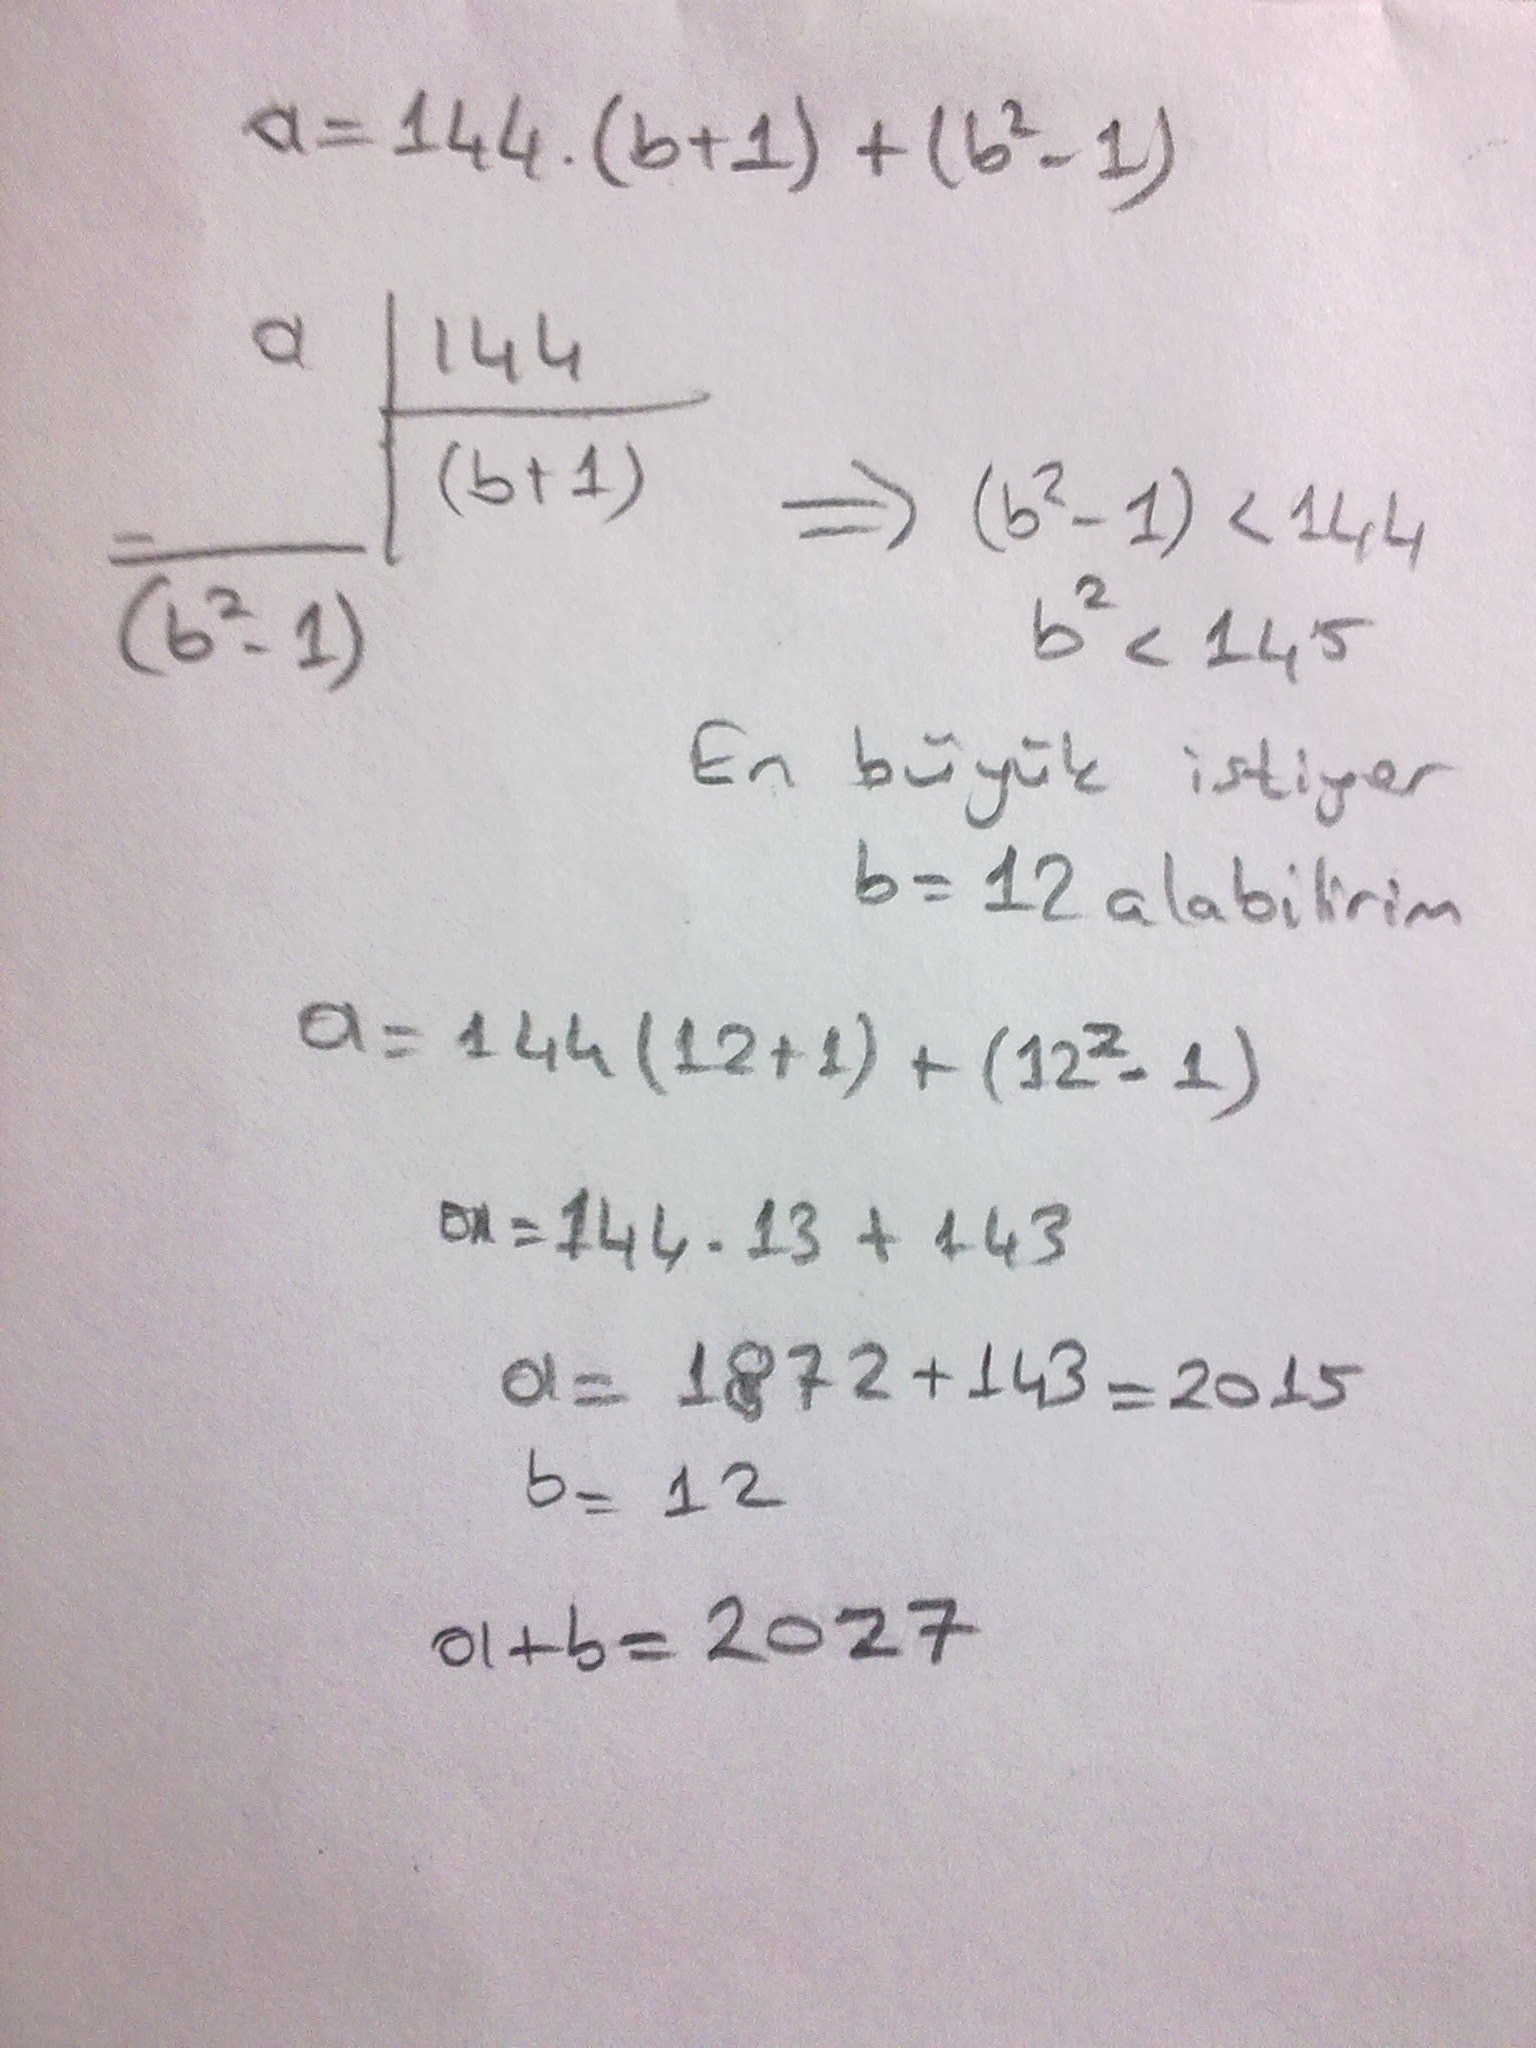 a = 144.(b+1) + (b²-1)
a | 144
(b+1)
(b²-1)
⇒ (b²-1) < 144
b² < 145
En büyük istiyor
b = 12 alabilirim
a = 144(12+1) + (12²-1)
a = 144.13 + 143
a = 1872 + 143 = 2015
b = 12
a+b = 2027